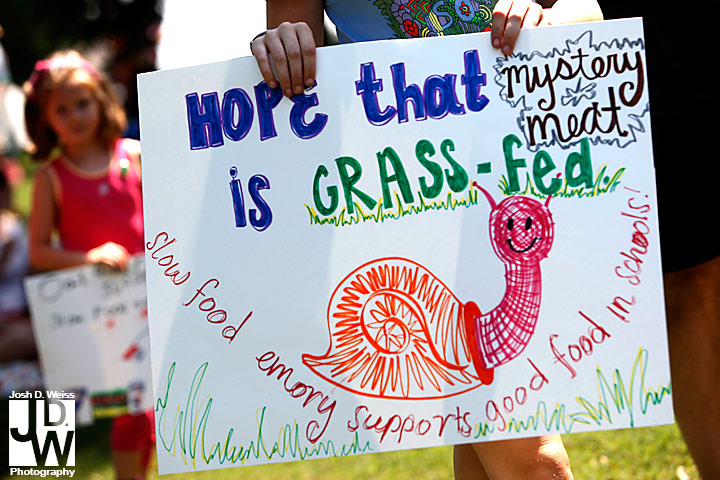 HOPE that mystery
meat
is GRASS-fed.
slow food emory supports good food in schools!
Josh D. Weiss
JD.
W
Photography